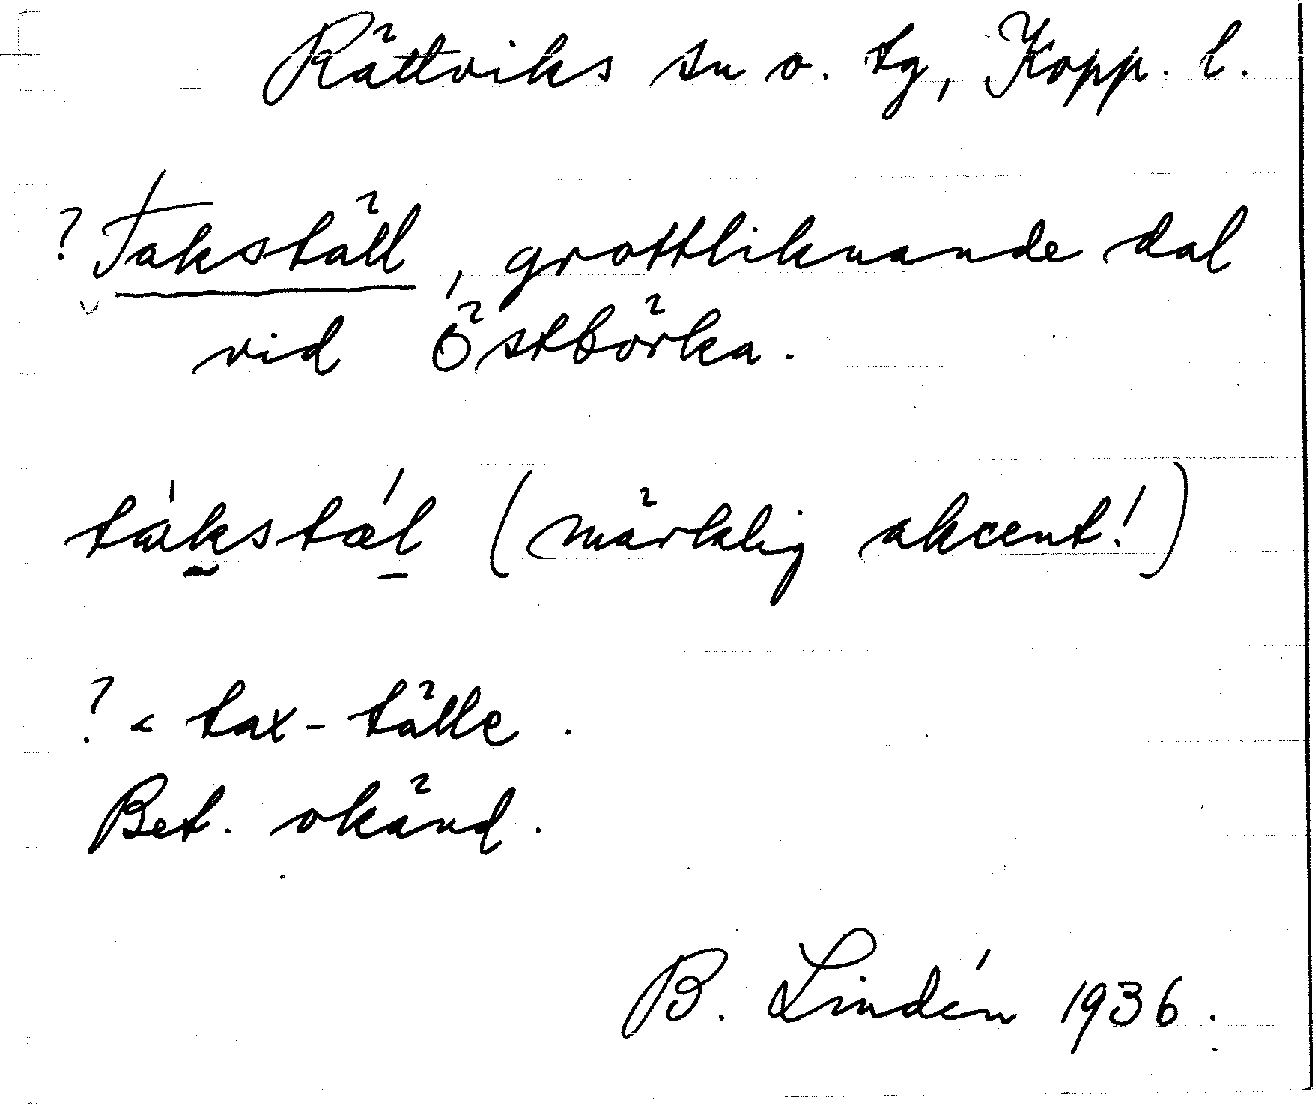 Rättviks sn o. tg, Kopp. l.
? Takställ, grottliknande dal
vid Östbörka.
tàkstǽl (märklig akcent!)
? < tax-tälle.
Bet. okänd.
B. Lindén 1936.